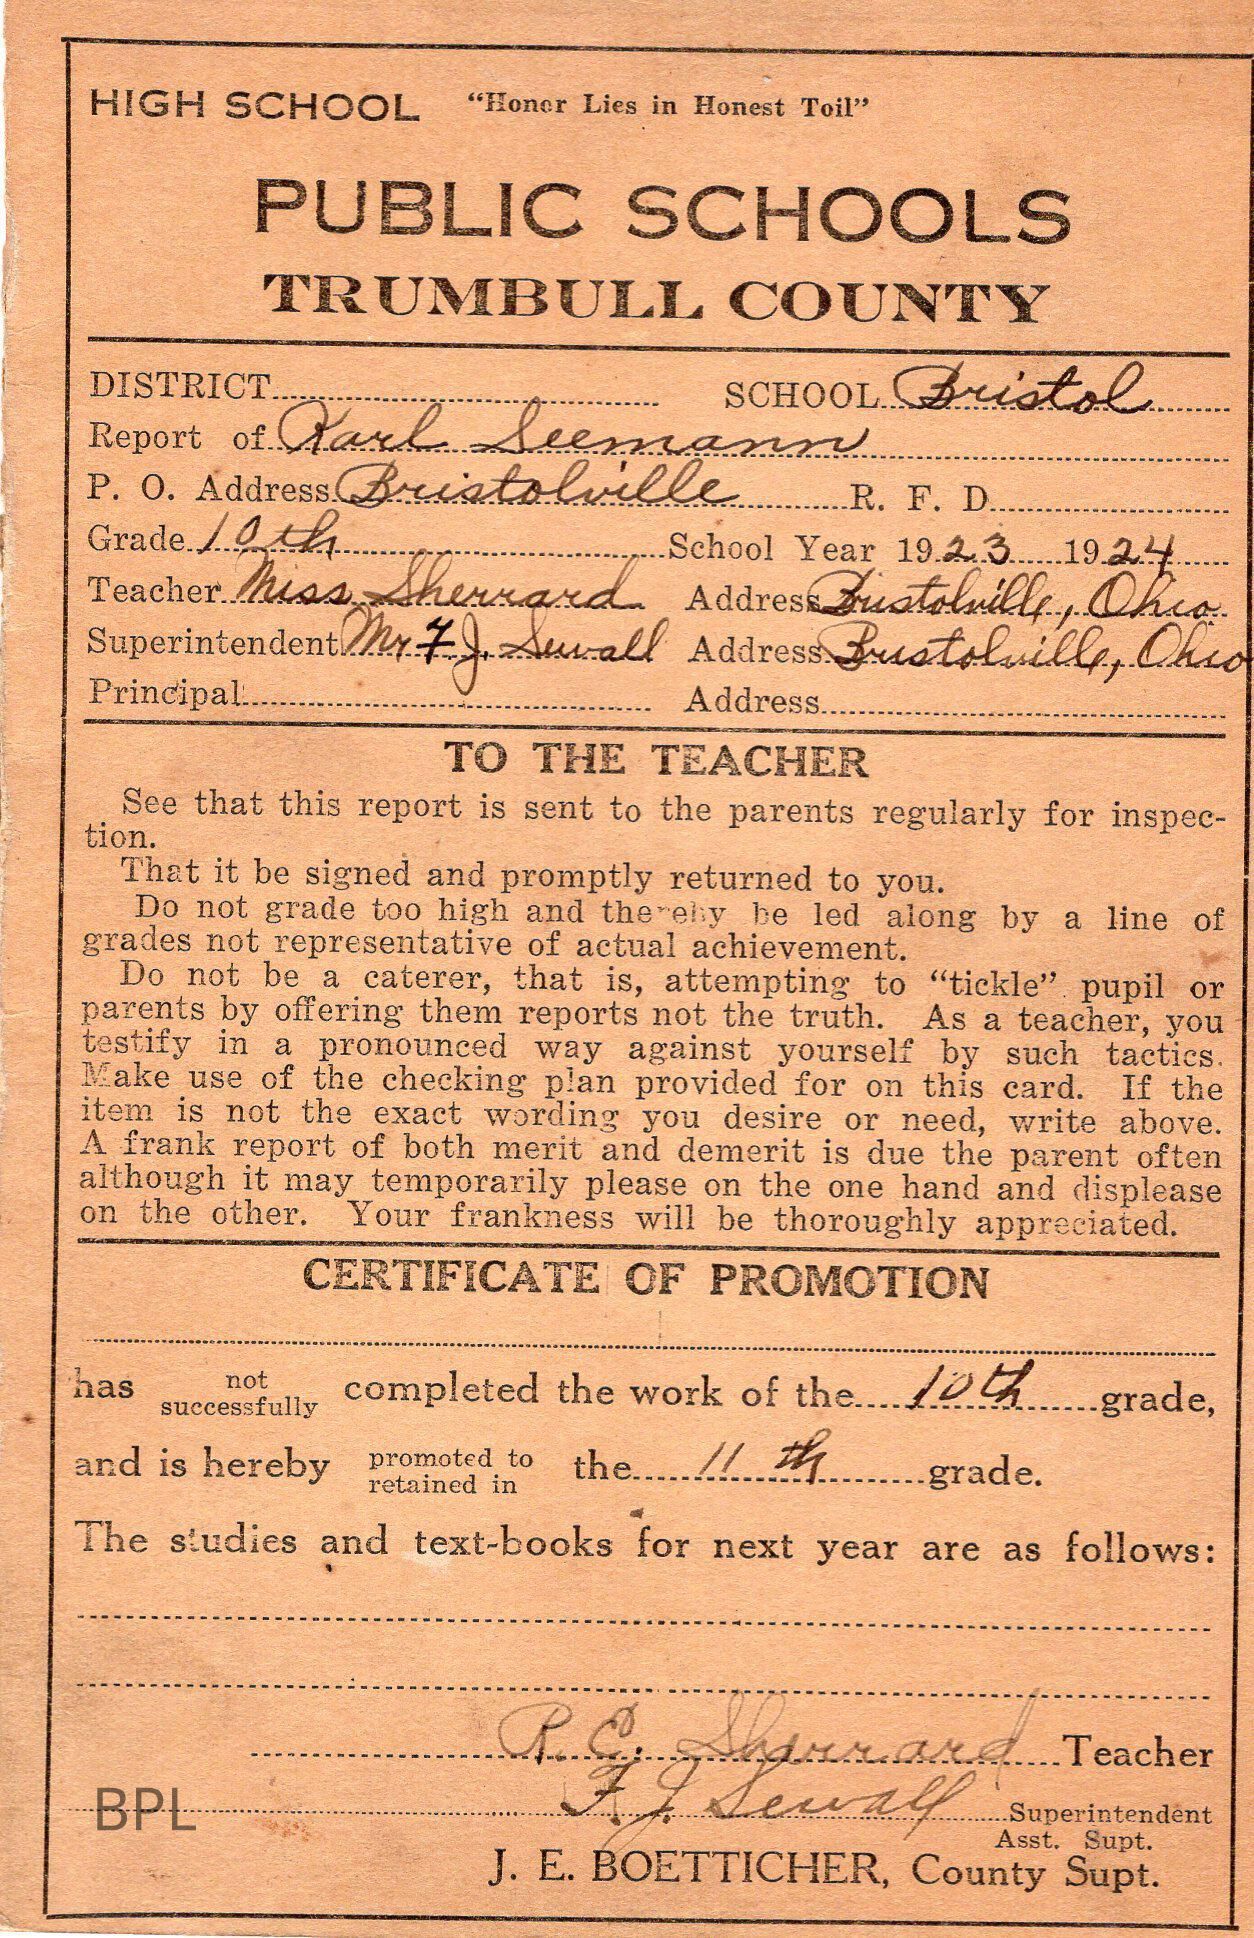 HIGH SCHOOL "Honor Lies in Honest Toil"
PUBLIC SCHOOLS
TRUMBULL COUNTY
DISTRICT SCHOOL Bristol
Report of Karl Seemann
P. O. Address Bristolville R. F. D.
Grade 10th School Year 1923 1924
Teacher Miss Sherrard Address Bristolville, Ohio
Superintendent Mr F. J. Sewall Address Bristolville, Ohio
Principal Address
TO THE TEACHER
See that this report is sent to the parents regularly for inspec-
tion.
That it be signed and promptly returned to you.
Do not grade too high and thereby be led along by a line of
grades not representative of actual achievement.
Do not be a caterer, that is, attempting to "tickle" pupil or
parents by offering them reports not the truth. As a teacher, you
testify in a pronounced way against yourself by such tactics.
Make use of the checking plan provided for on this card. If the
item is not the exact wording you desire or need, write above.
A frank report of both merit and demerit is due the parent often
although it may temporarily please on the one hand and displease
on the other. Your frankness will be thoroughly appreciated.
CERTIFICATE OF PROMOTION
has not successfully completed the work of the 10th grade,
and is hereby promoted to retained in the 11th grade.
The studies and text-books for next year are as follows:
R. E. Sherrard Teacher
BPL F. J. Sewall Superintendent
Asst. Supt.
J. E. BOETTICHER, County Supt.